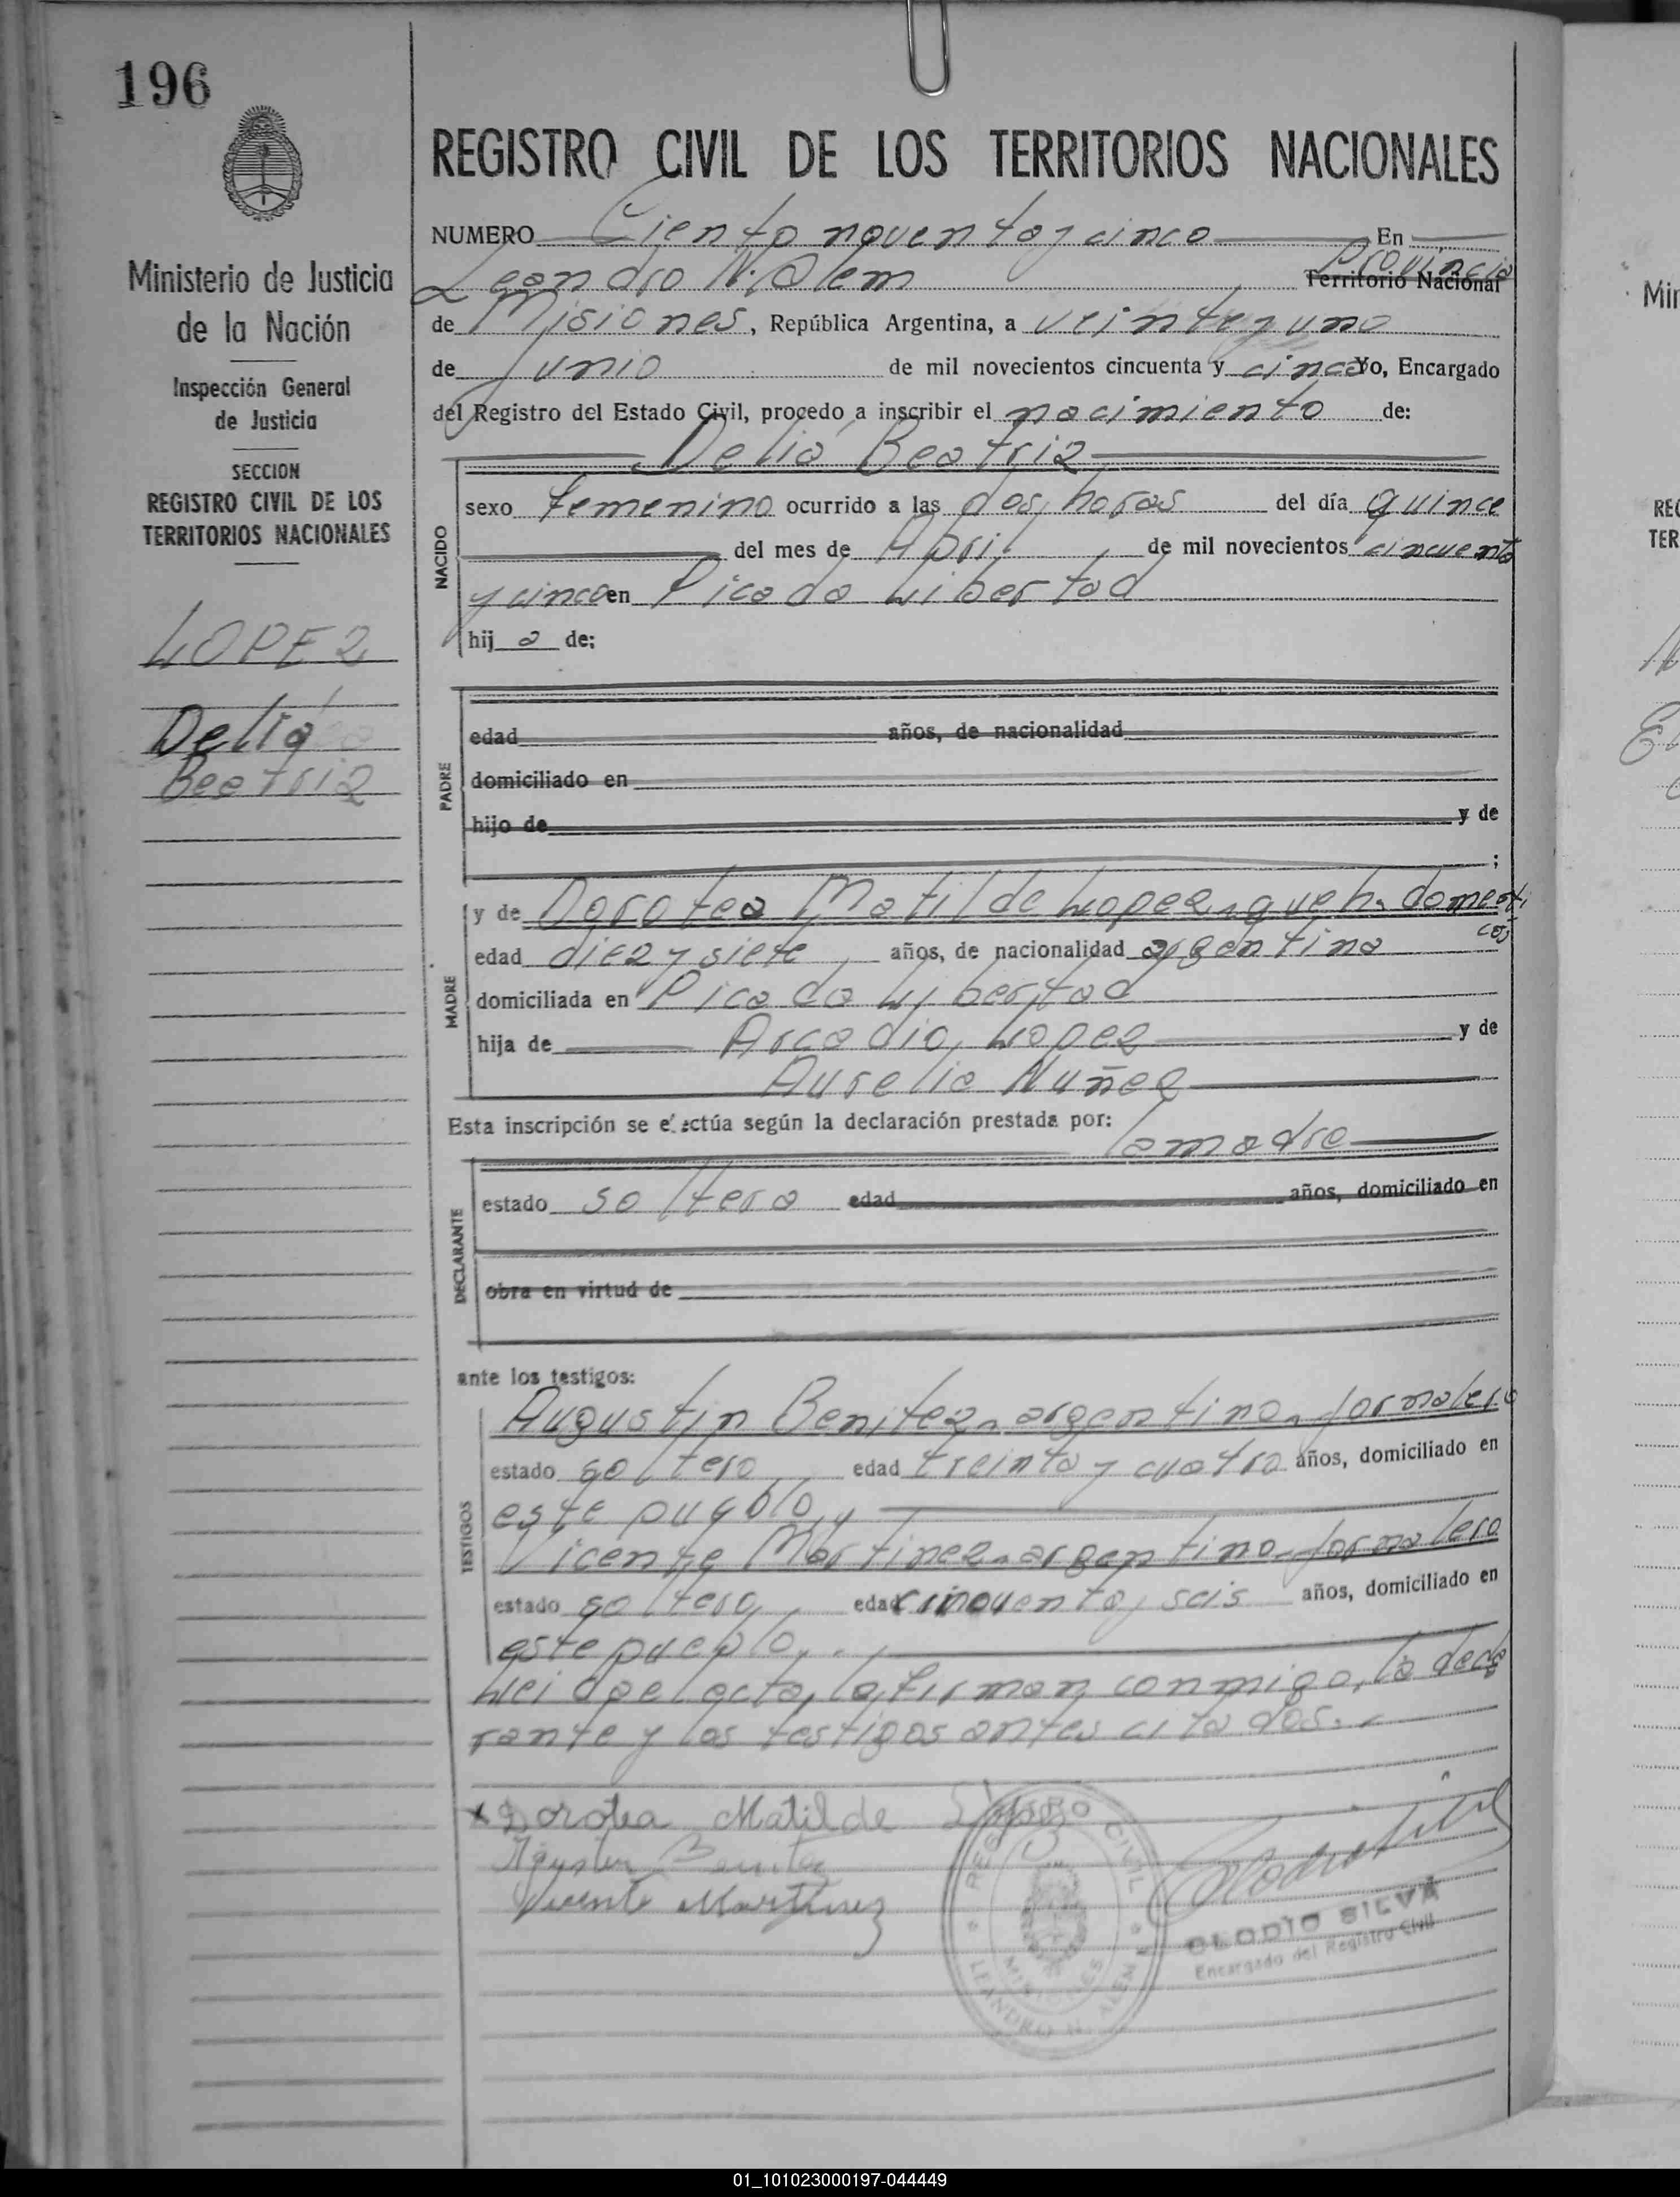 196
Ministerio de Justicia
de la Nación
Inspección General
de Justicia
SECCION
REGISTRO CIVIL DE LOS
TERRITORIOS NACIONALES
LOPEZ
Delia
Beatriz
REGISTRO CIVIL DE LOS TERRITORIOS NACIONALES
NUMERO Ciento noventa y cinco En
Leandro N. Alem Provincia Territorio Nacional
de Misiones, República Argentina, a veinte y uno
de Junio de mil novecientos cincuenta y cinco Yo, Encargado
del Registro del Estado Civil, procedo a inscribir el nacimiento de:
Delia Beatriz
NACIDO
sexo femenino ocurrido a las dos horas del día quince
del mes de Abril de mil novecientos cincuenta
y cinco en Picada Libertad
hij a de:
PADRE
edad años, de nacionalidad
domiciliado en
hijo de y de
;
MADRE
y de Dorotea Matilde Lopez, que h. domesti
cos
edad diez y siete años, de nacionalidad argentina
domiciliada en Picada Libertad
hija de Arcadio Lopez y de
Aurelia Nuñez
Esta inscripción se efectúa según la declaración prestada por:
la madre
DECLARANTE
estado soltera edad años, domiciliado en
obra en virtud de
ante los testigos:
TESTIGOS
Augustin Benitez, argentino, jornalero
estado soltero edad treinta y cuatro años, domiciliado en
este pueblo, y
Vicente Martinez, argentino, jornalero
estado soltero, edad cincuenta y seis años, domiciliado en
este pueblo.
Leida el acta, la firman conmigo, la decla
rante y los testigos antes citados.
x Dorotea Matilde López
Agustin Benitez
Vicente Martinez
REGISTRO CIVIL
MISIONES
LEANDRO N. ALEM
CLODIO SILVA
Encargado del Registro Civil
Min
REG
TER
01_101023000197-044449